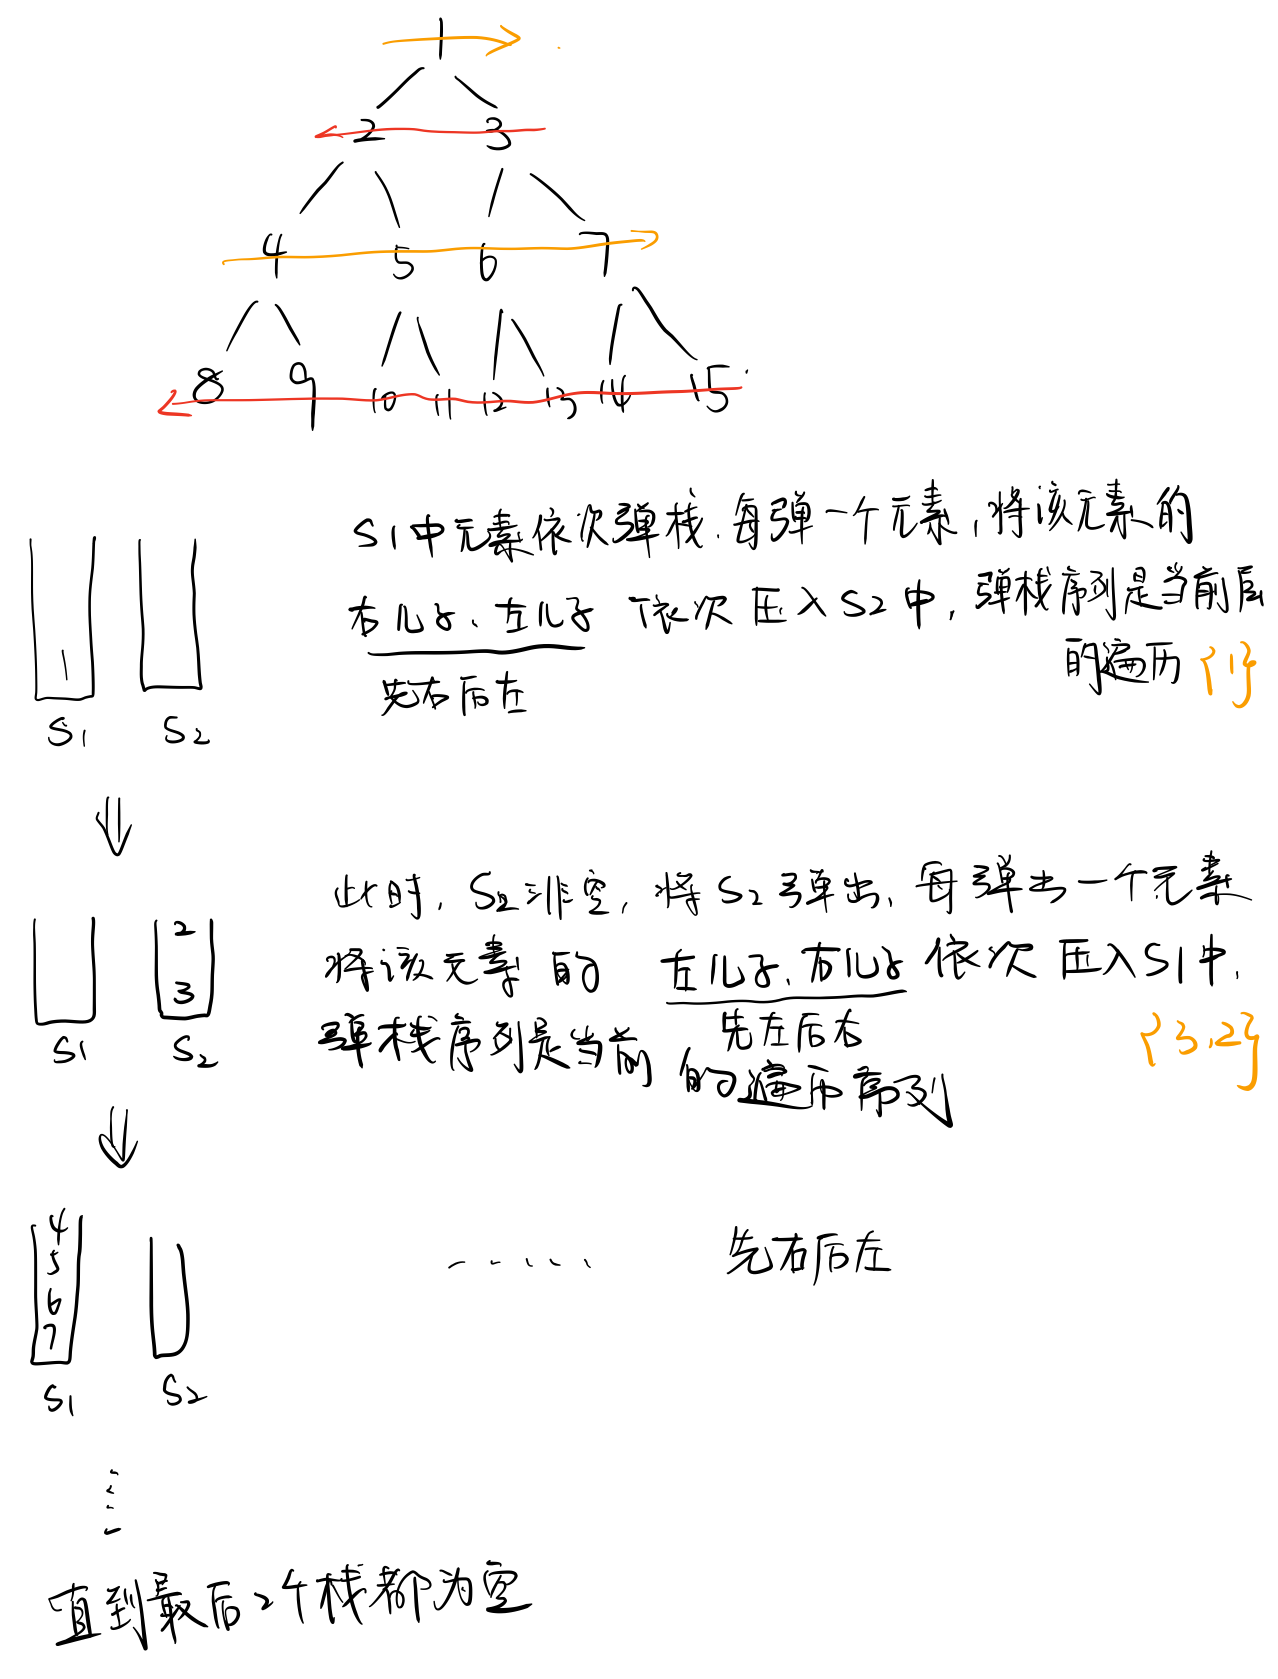 1
2 3
4 5 6 7
8 9 10 11 12 13 14 15
S1中元素依次弹栈.每弹一个元素,将该元素的
右儿子、左儿子 依次压入S2中,弹栈序列是当前层
的遍历 {1}
先右后左
1
S1 S2
此时,S2非空,将S2弹出,每弹出一个元素
将该元素的 左儿子、右儿子 依次压入S1中,
先左后右
弹栈序列是当前 的遍历序列 {3,2}
2
3
S1 S2
4
5
6
7
..... 先右后左
S1 S2
直到最后2个栈都为空